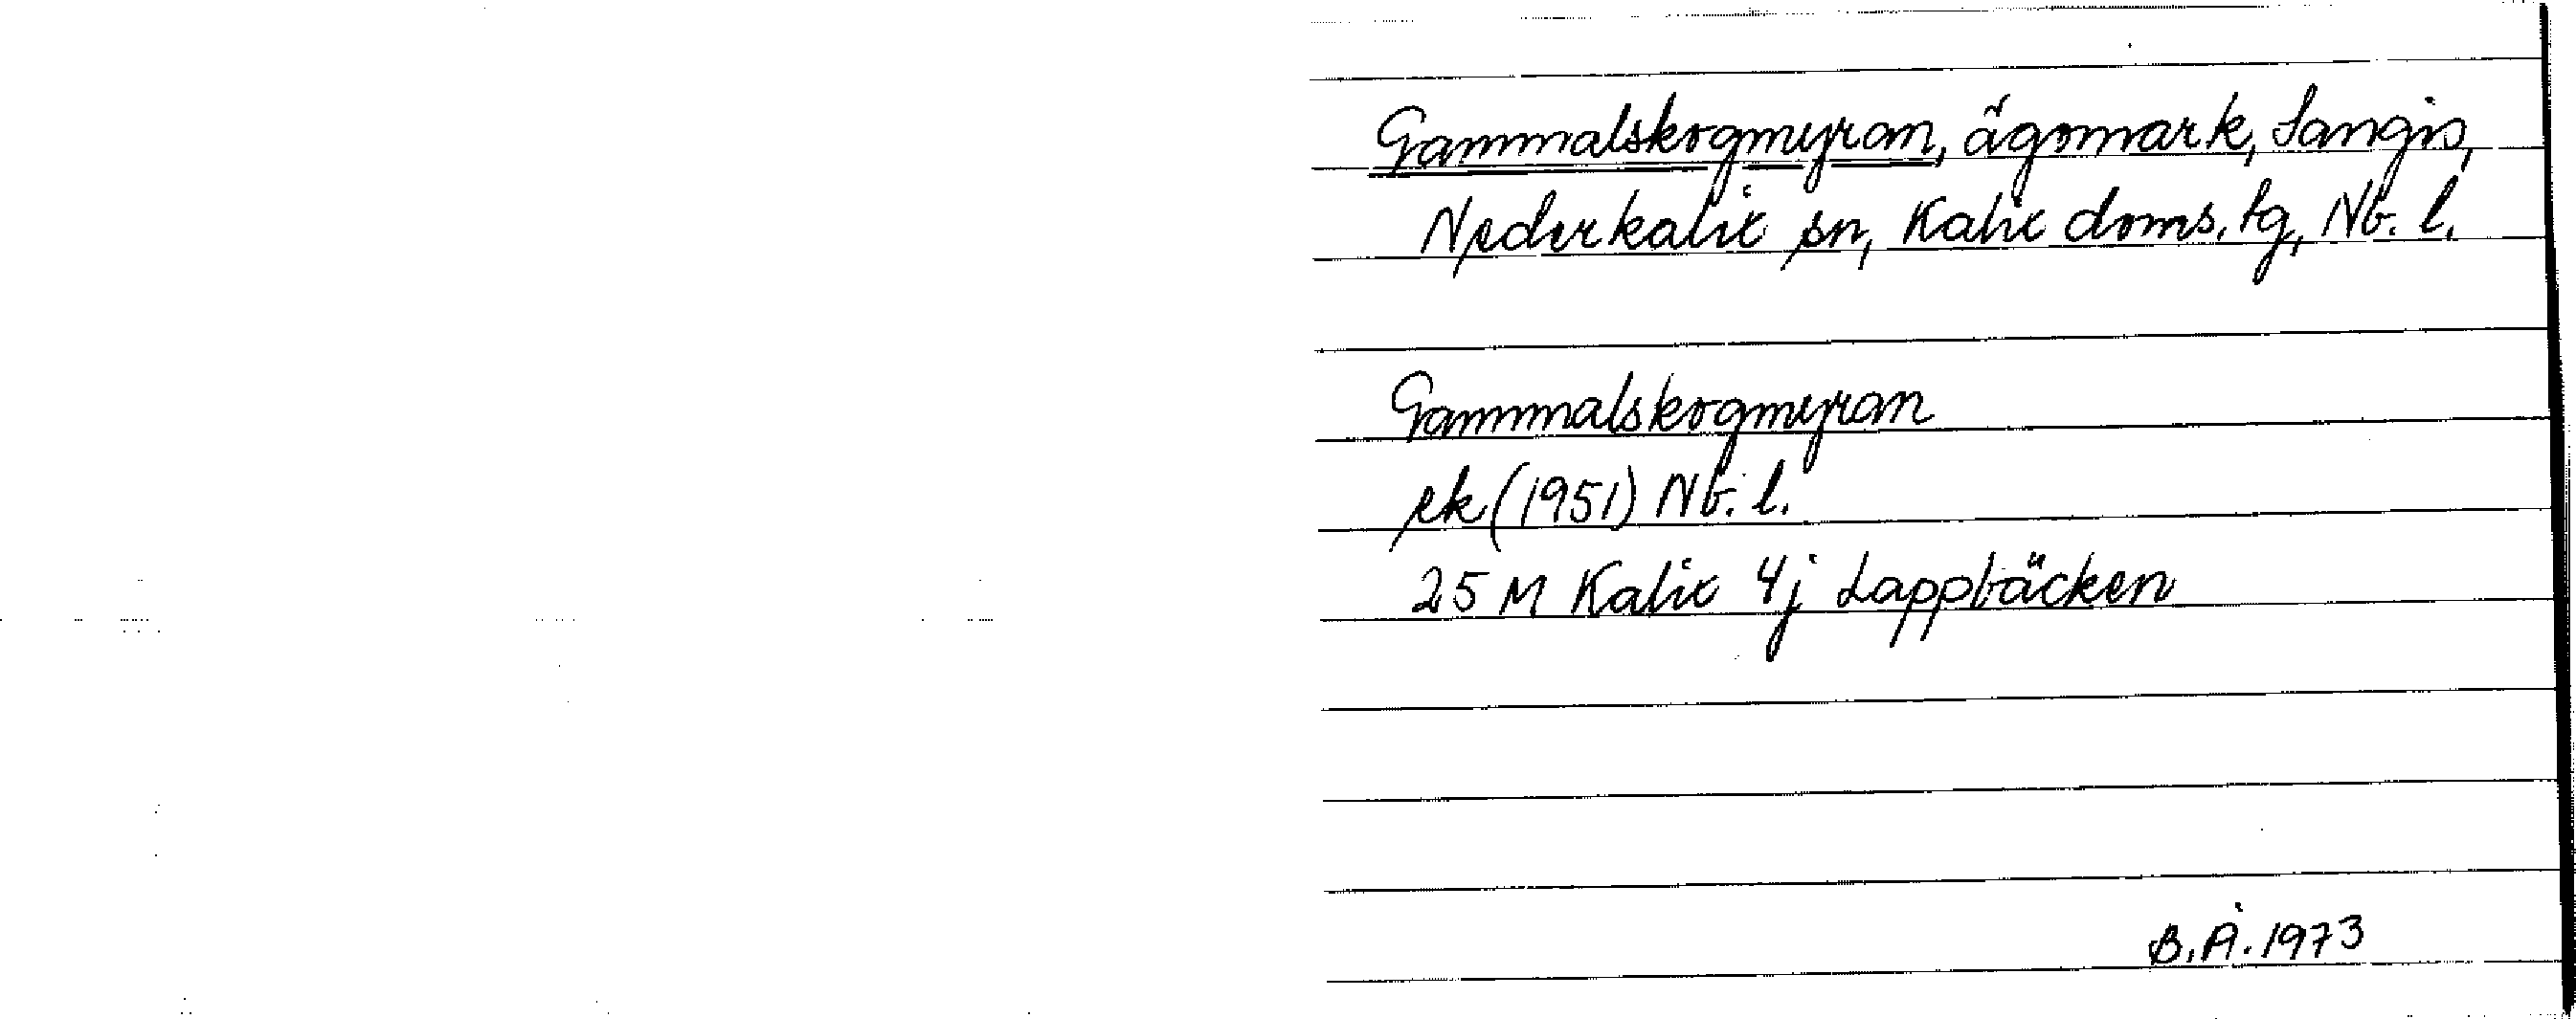 Gammalskogmyran, ägomark, Sangis,
Nederkalix sn, Kalix doms. tg, Nb. l.
Gammalskogmyran
ek (1951) Nb. l.
25 M Kalix 4j Lappbäcken
B.Å. 1973